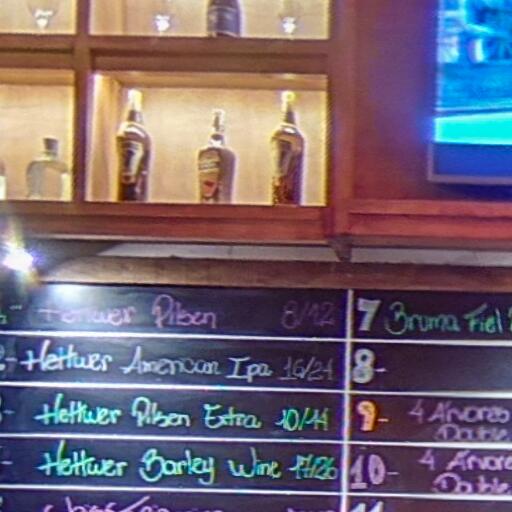 Hettwer Pilsen 8/12
Hettwer American Ipa 16/21
Hettwer Pilsen Extra 10/14
Hettwer Barley Wine 17/26
7 Bruma Fiel
8-
9- 4 Árvores Double
10- 4 Árvore Double